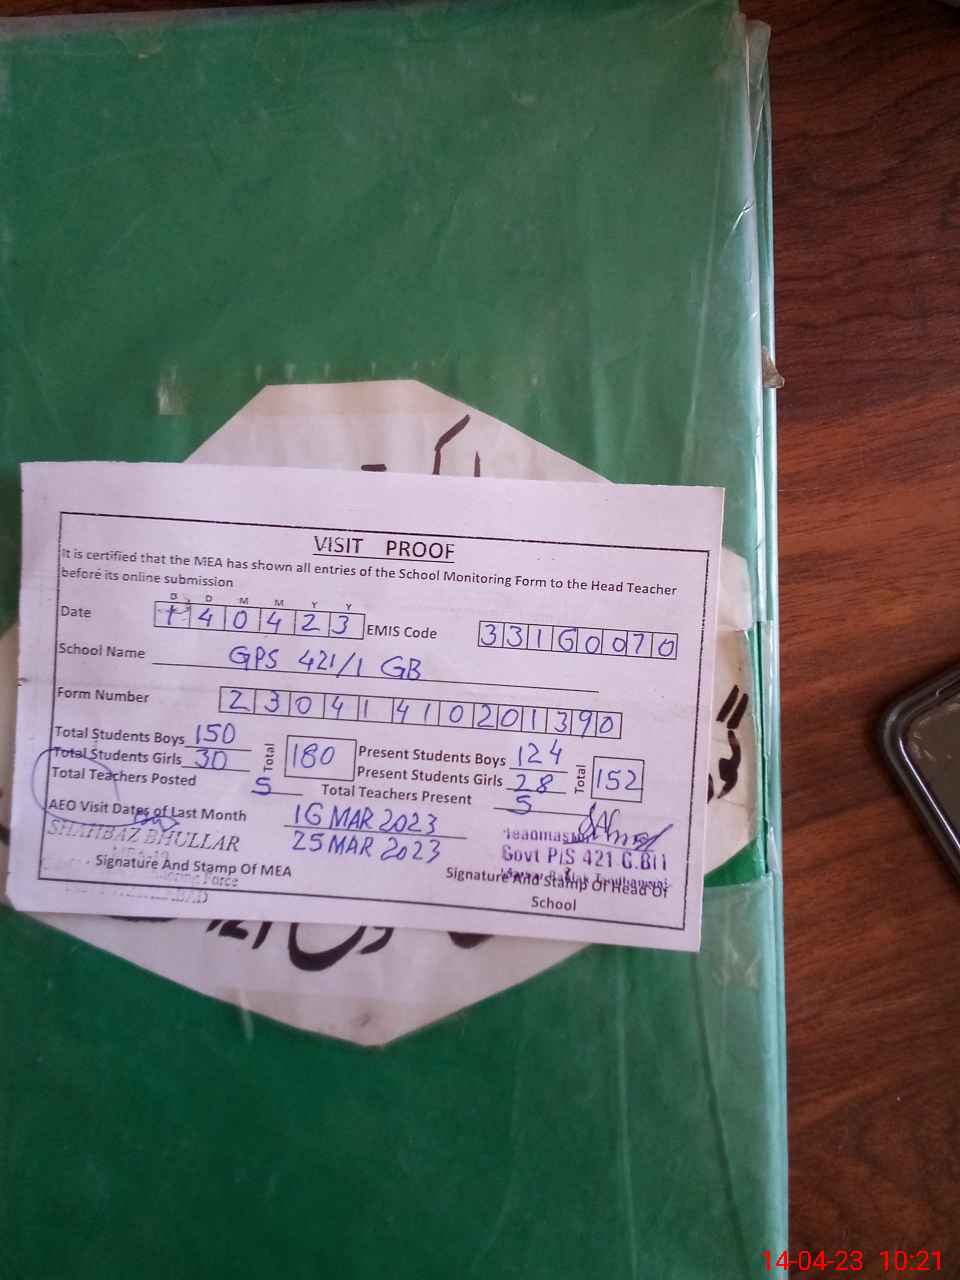 VISIT PROOF
It is certified that the MEA has shown all entries of the School Monitoring Form to the Head Teacher
before its online submission
D D M M Y Y
Date 1 4 0 4 2 3 EMIS Code 3 3 1 6 0 0 7 0
School Name GPS 421/1 GB
Form Number 2 3 0 4 1 4 1 0 2 0 1 3 9 0
Total Students Boys 150 Total 180 Present Students Boys 124 Total 152
Total Students Girls 30 Present Students Girls 28
Total Teachers Posted 5 Total Teachers Present 5
AEO Visit Dates of Last Month 16 MAR 2023
25 MAR 2023
SHAHBAZ BHULLAR
Govt P/S 421 G.B
Signature And Stamp Of MEA
Signature And Stamp Of Head Of
School
14-04-23 10:21